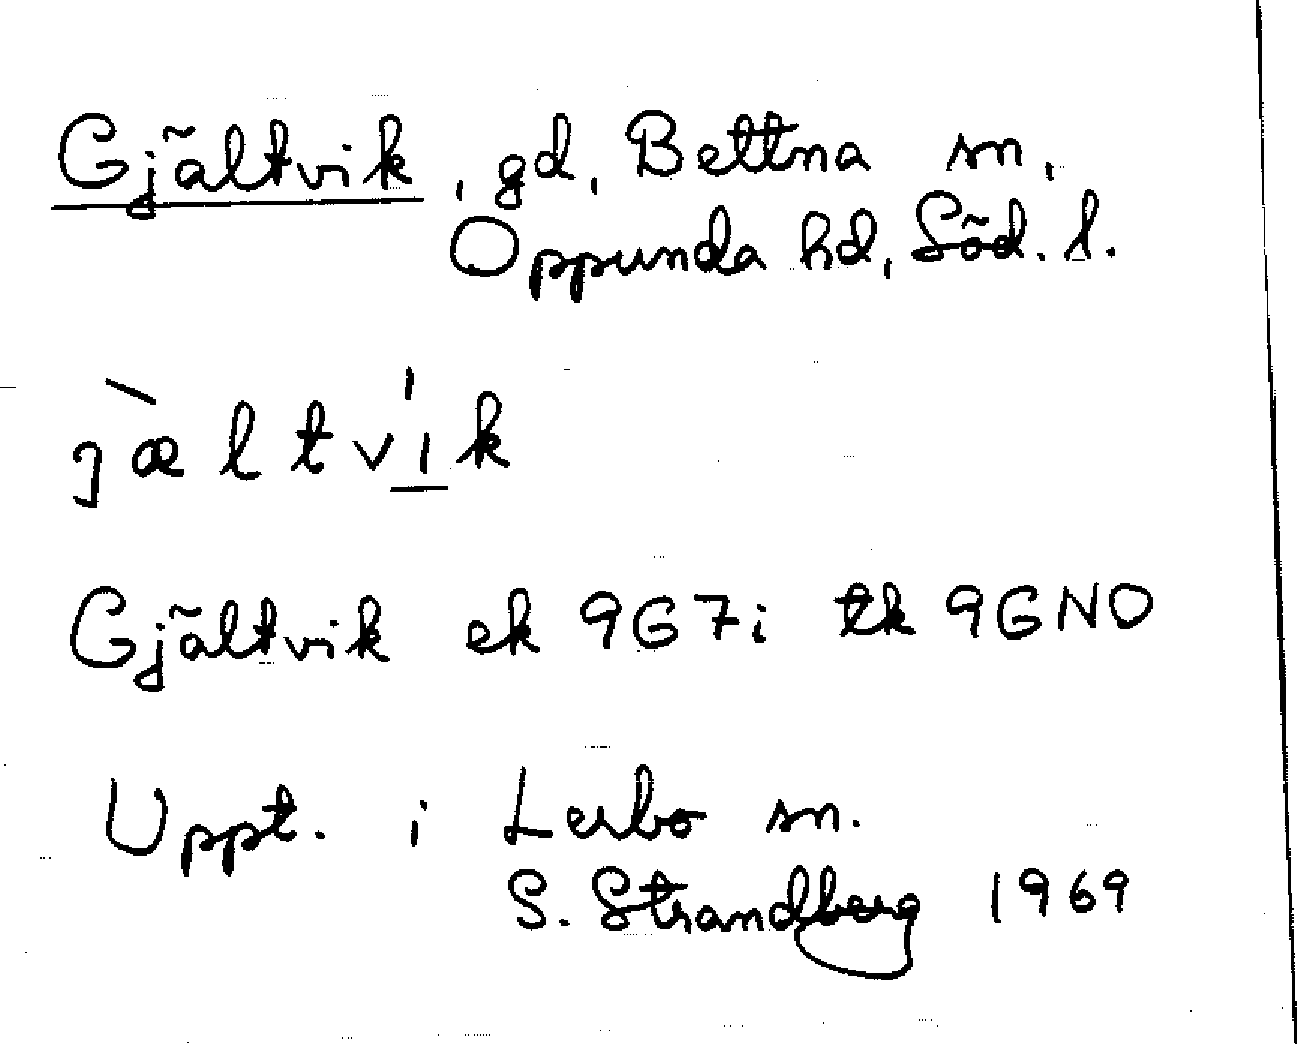 Gjältvik, gd, Bettna sn,
Oppunda hd, Söd. l.
jæ̀ltvı̱́k
Gjältvik ek 9G7i tk 9GNO
Uppt. i Lerbo sn.
S. Strandberg 1969